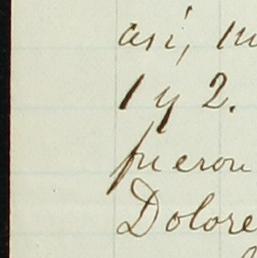 así, m
1 y 2.
fueron
Dolore